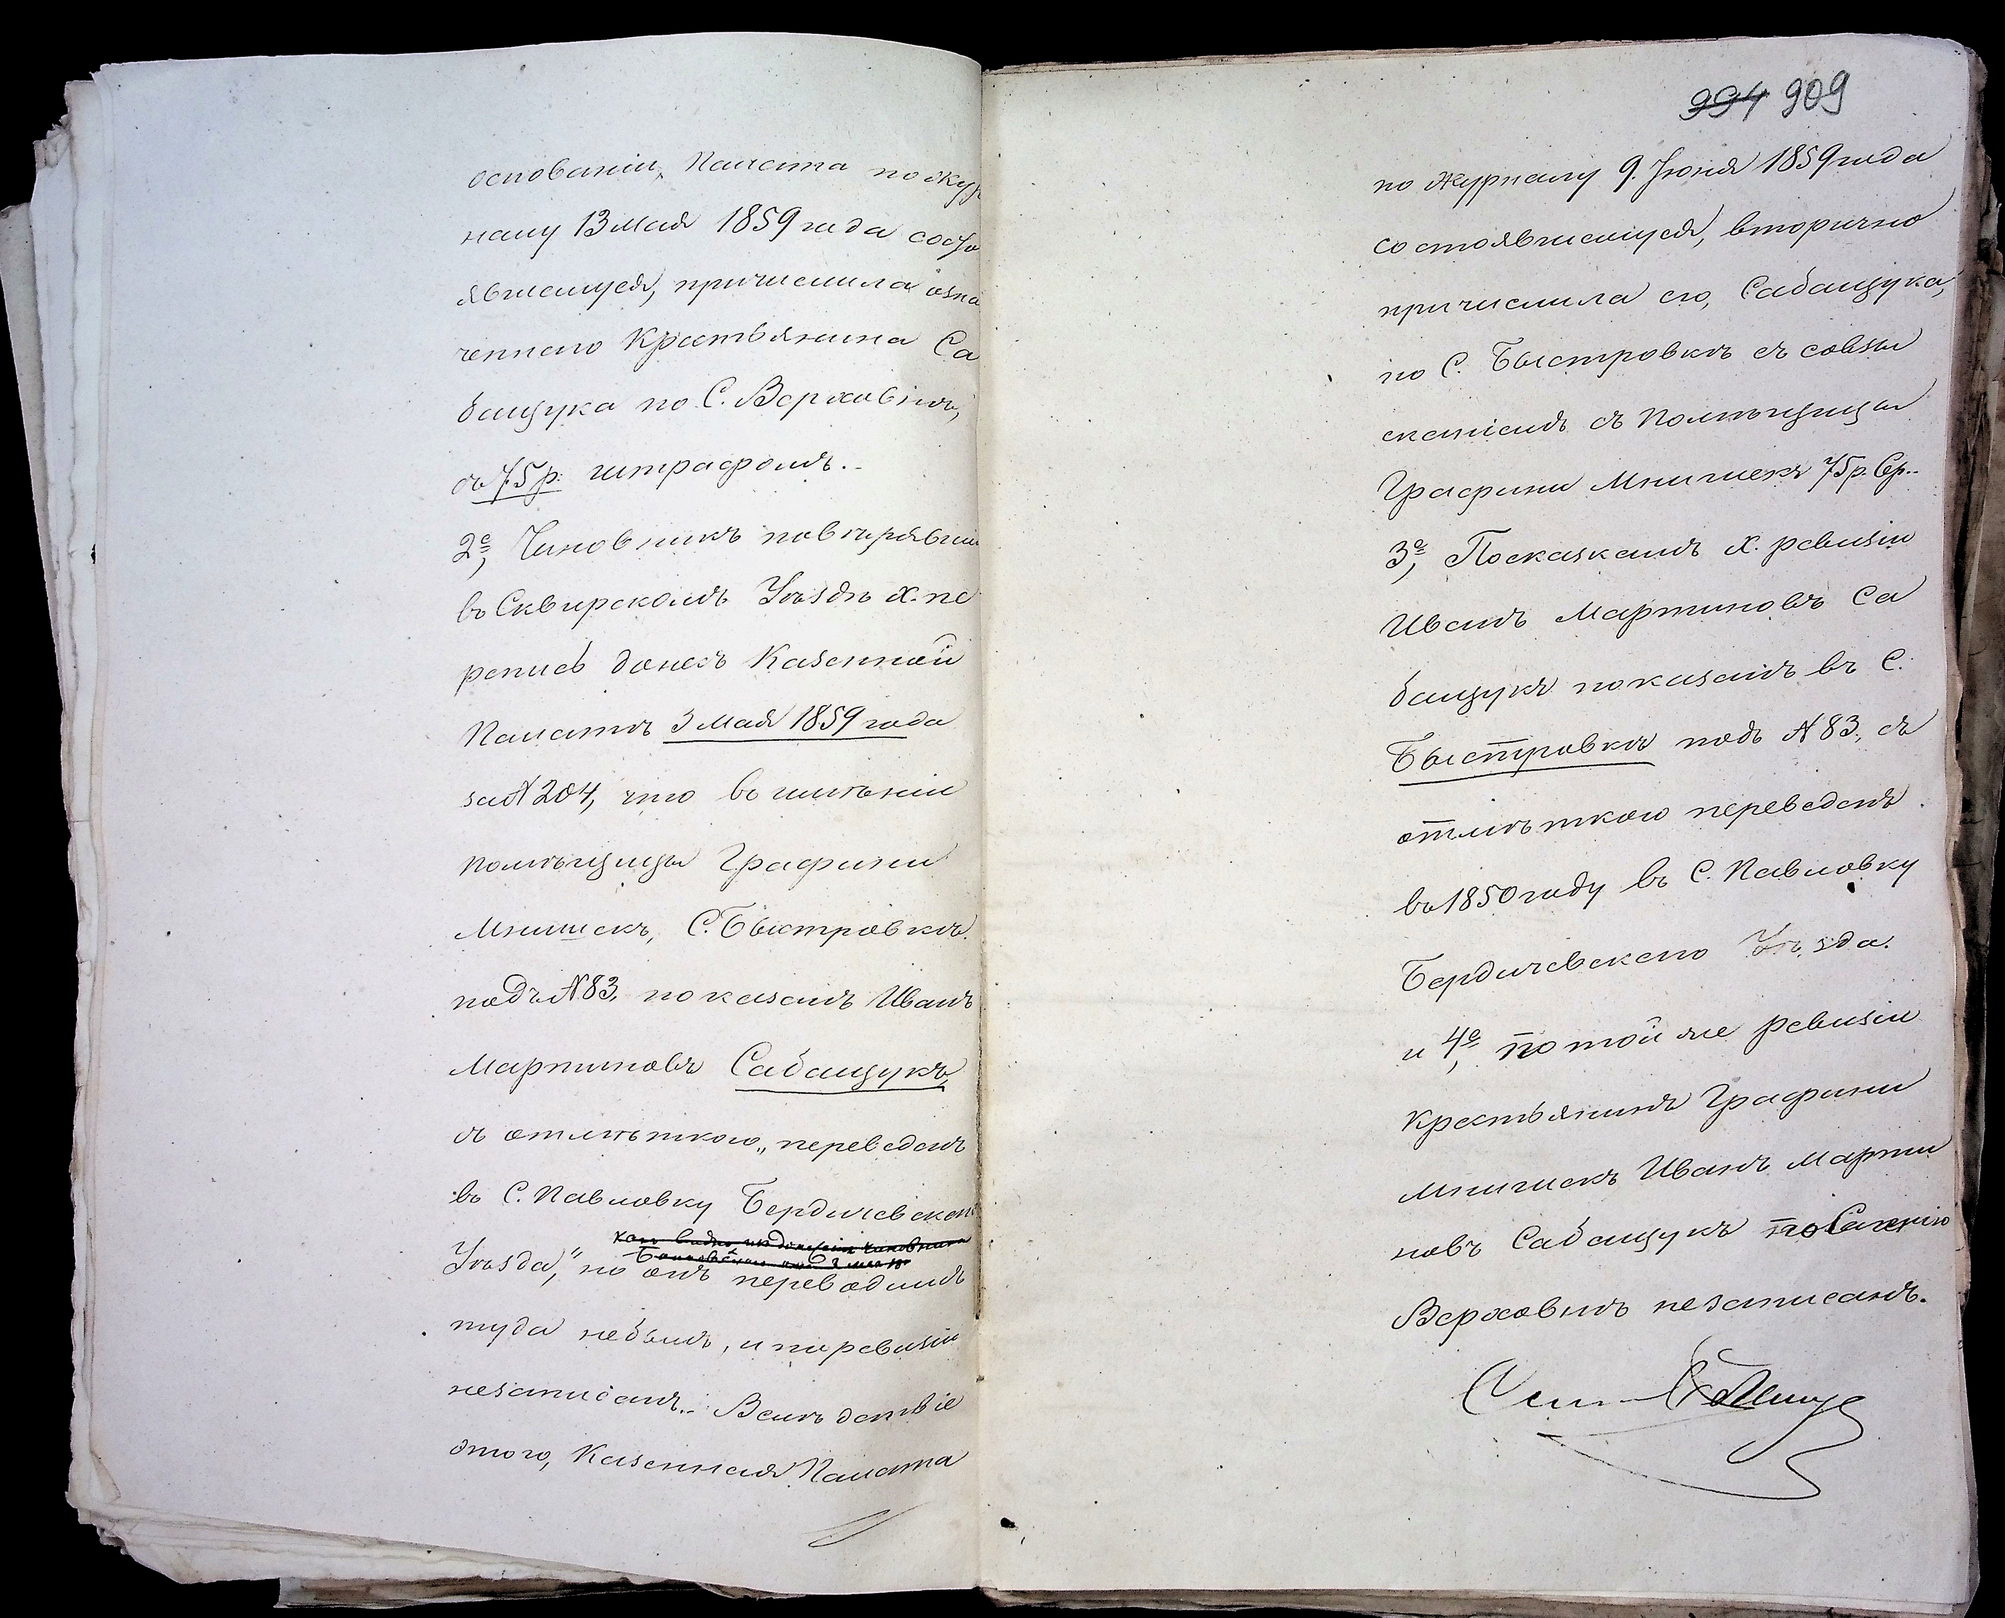 основаніи, Палата по жур
налу 13 Мая 1859 года состо
явшемуся, причислила озна
ченнаго Крестьянина Са
бащука по С. Верховнѣ,
съ 75 р. штрафомъ.
2е, Чиновникъ повѣрявшій
въ Сквирскомъ Уѣздѣ X. пе
репись донесъ Казенной
Палатѣ 3 Мая 1859 года
за № 204, что въ имѣніи
помѣщицы Графини
Мнишекъ, С. Быстровкѣ
подъ № 83, показанъ Иванъ
Мартиновъ Сабащукъ,
съ отмѣткою „переведенъ
въ С. Павловку Бердичевскаго
Уѣзда," но онъ переводимъ
туда небылъ, и по ревизіи
незаписанъ. Вслѣдствіе
этого, Казенная Палата
994 909
по Журналу 9 Іюня 1859 года
состоявшемуся, вторично
причислила его, Сабащука,
по С. Быстровкѣ съ совзы
сканіемъ съ Помѣщицы
Графини Мнишекъ 75 р. Сер.
3е, По сказкамъ X. ревизіи
Иванъ Мартиновъ Са
бащукъ показанъ въ С.
Быстровкѣ подъ № 83, съ
отмѣткою переведенъ
въ 1850 году въ С. Павловку
Бердичевскаго Уѣзда.
и 4е, по той же ревизіи
Крестьянинъ Графини
Мнишекъ Иванъ Марти
новъ Сабащукъ по Селенію
Верховнѣ незаписанъ.